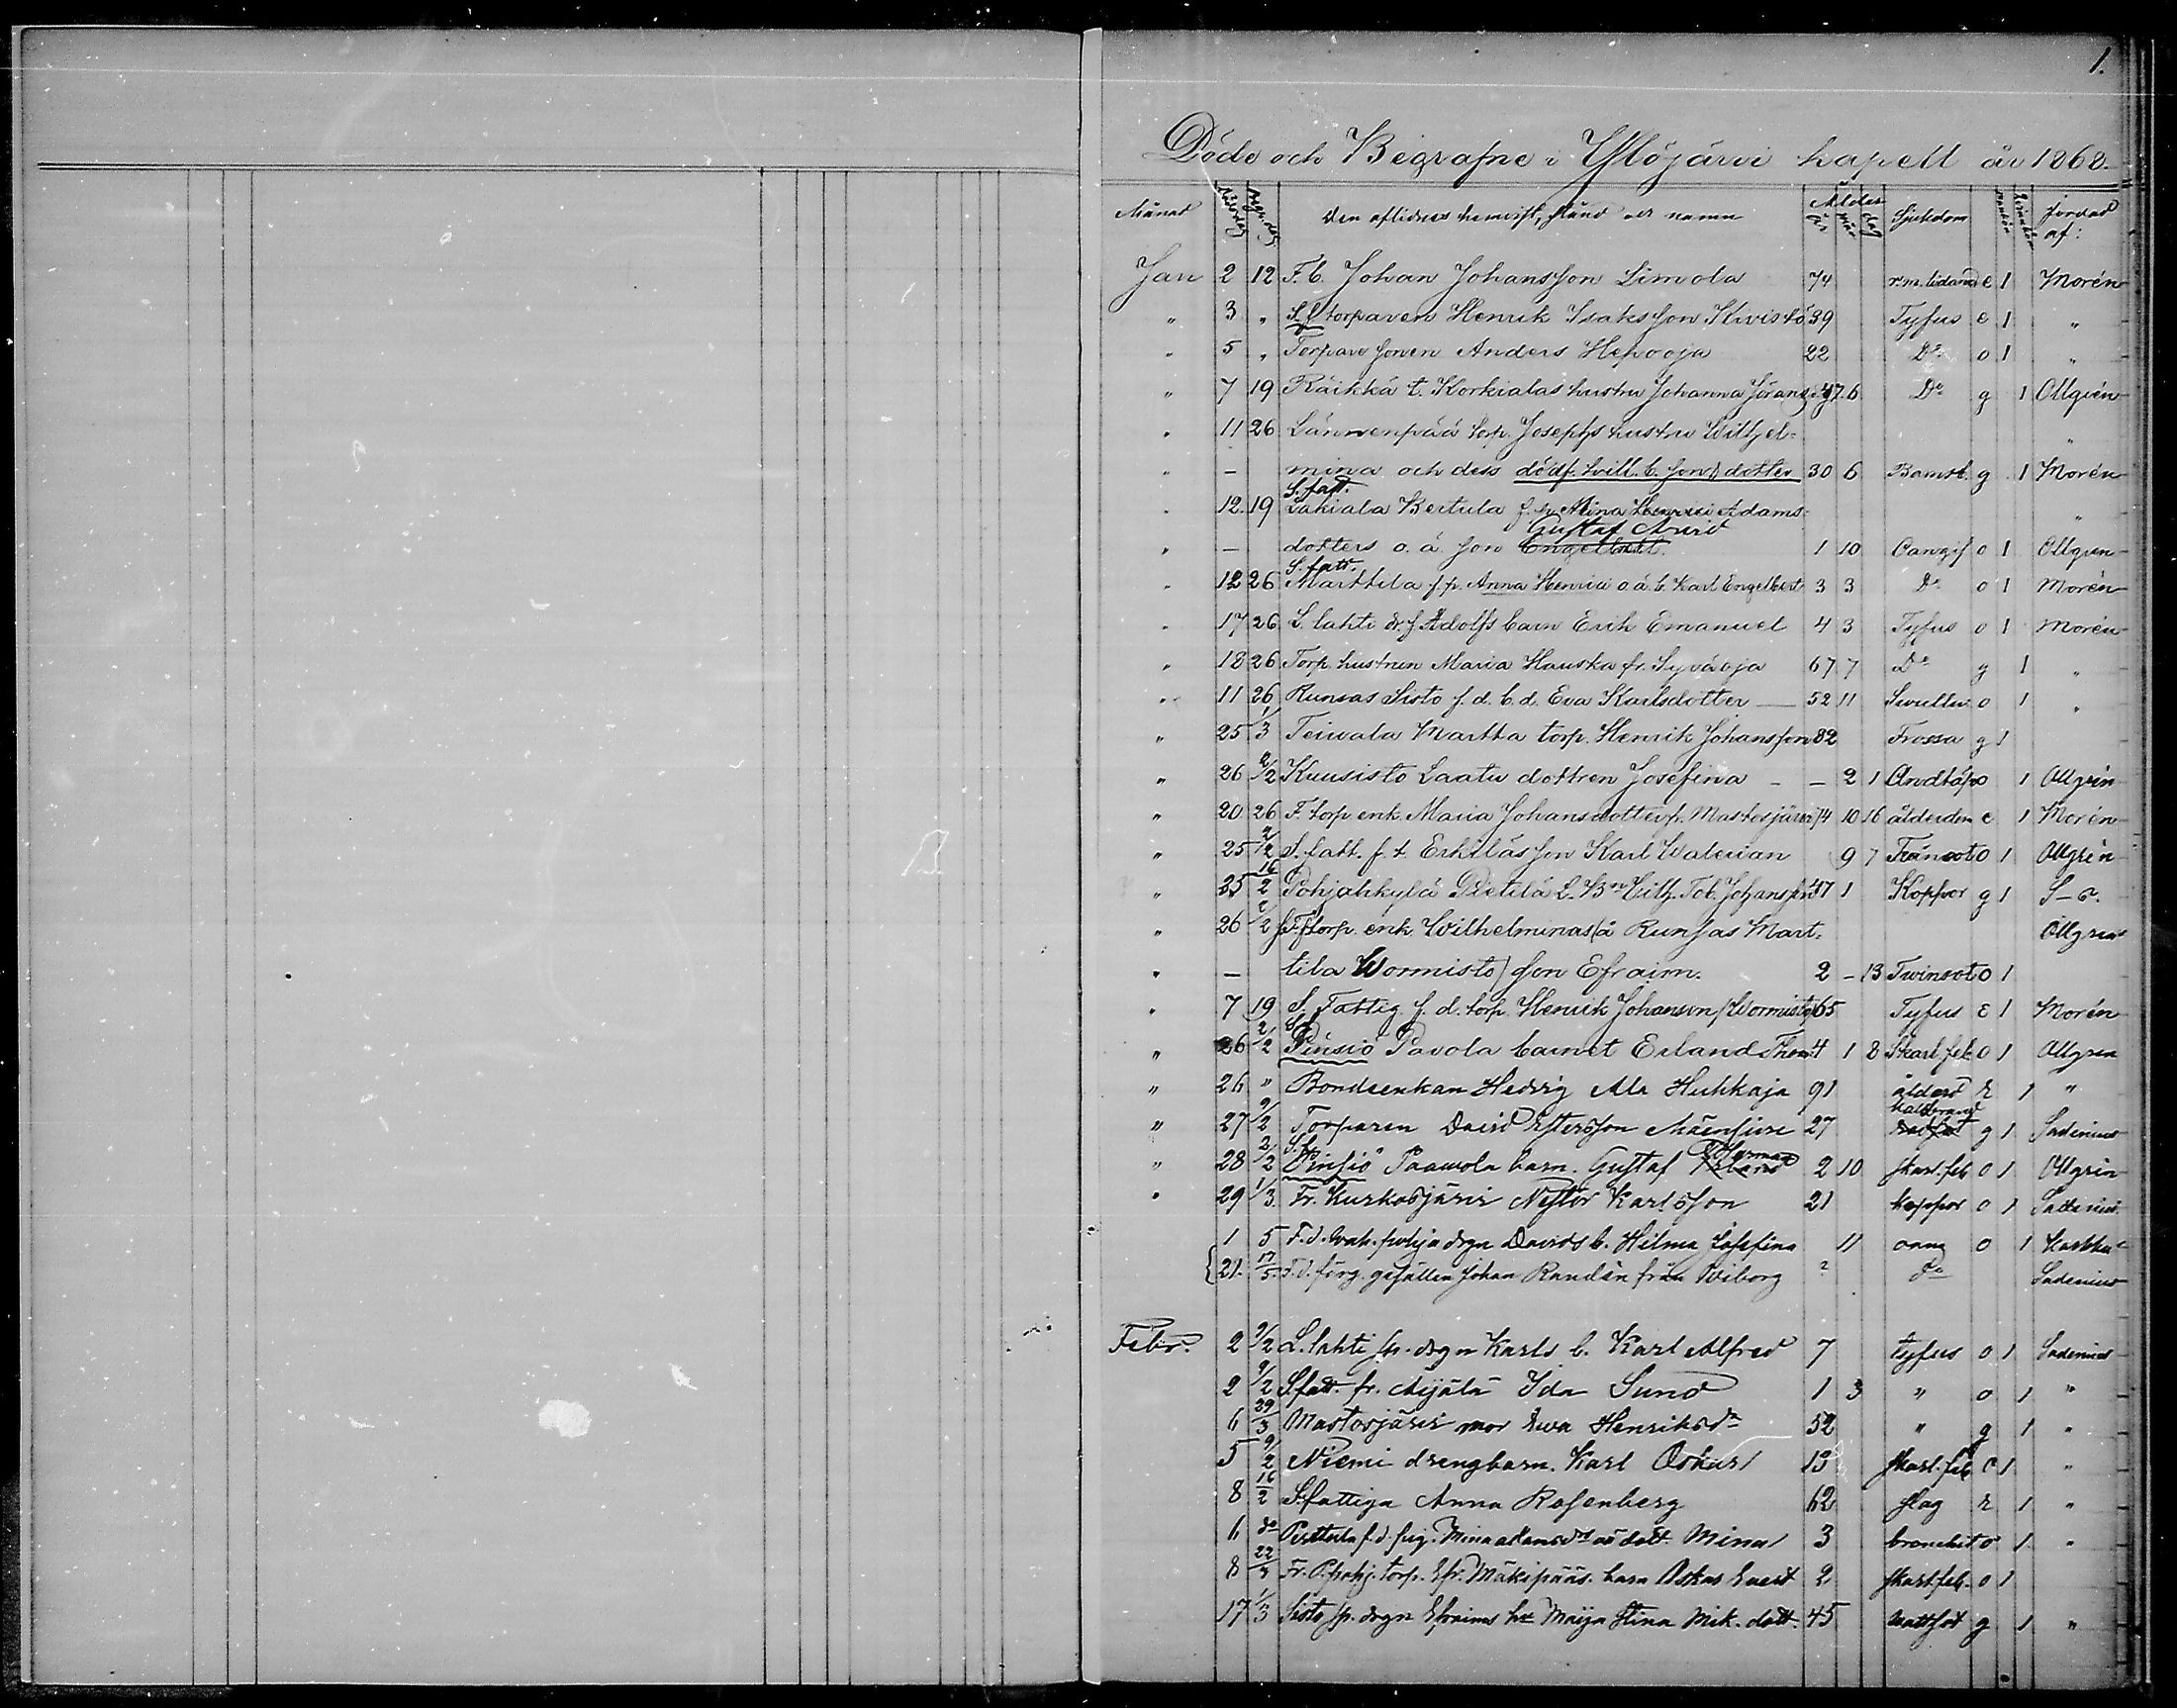 1.
Döde och Begrafne i Ylöjärvi kapell år 1868.
Månad Dödsdag Begr. dag Den aflidnes hemvist, stånd och namn Ålder år mån dag Sjukdom mankön qvinkön jordad af:
Jan 2 12 F. b. Johan Johansson Limola 74 e 1 Morén
" 3 " S. f. torparen Henrik Isaksson Kivistö 39 Tyfus e 1 "
" 5 " Torpare sonen Anders Hepooja 22 D:o o 1 "
" 7 19 Räikkä t. Korkialas hustru Johanna Jöransd. 47 6 D:o g 1 Ollgrén
" 11 26 Lännenpää torp. Josephs hustru Wilhel= "
" – mina och dess dödf. tvill. b. son o dotter 30 6 Barnsb. g 1 Morén
S. fatt.
" 12 19 Lakiala Bertula f. p. Mina Henrici Adams= "
Gustaf Arvid
" – dotters o. ä. son Engelbert. 1 10 o 1 Ollgren
S. fatt.
" 12 26 Marttila f. p. Anna Henrici o. ä. b. Karl Engelbert 3 3 D:o o 1 Morén
" 17 26 L. lahti dr. f. Adolfs barn Erik Emanuel 4 3 Tyfus o 1 Morén
" 18 26 Torp. hustrun Maria Hauska fr. Syväoja 67 7 D:o g 1 "
" 11 26 Runsas Sisto f. d. b. d. Eva Karlsdotter 52 11 o 1 "
" 25 1/3 Teivala Martta torp. Henrik Johansson 82 Frossa g 1
" 26 2/2 Kuusisto Laatu dottren Josefina – – 2 1 Andtäp o 1 Ollgrén
" 20 26 F. torp. enk. Maria Johansdotter fr. Mastosjärvi 74 10 16 ålderdom e 1 Morén
" 25 2/2 S. fatt. f. t. Erkiläs son Karl Walerian 9 7 Tränsot o 1 Ollgrén
" 25 16/2 Pohjankylä Pietilä L. B:n Vilh. Tob. Johansson 47 1 Koppor g 1 S–s.
" 26 2/2 F. torp. enk. Wilhelminas (å Runsas Mart= Ollgren
" – tila Wormisto) son Efraim. 2 – 13 Tvinsot o 1
" 7 19 S. Fattig. f. d. torp. Henrik Johansson (Wormisto) 65 Tyfus e 1 Morén
" 26 2/2 Pinsiö Pavola barnet Erland Thom. 4 1 8 Skarl. feb. o 1 Ollgren
" 26 " Bondeenkan Hedvig Ala Huhkaja 91 ålderd e 1 "
" 27 2/2 Torparen David Estersson Mäensivu 27 kallbrand g 1 Sadenius
" 28 2/2 Pinsiö Paavola barn. Gustaf Herman 2 10 skarl. feb. o 1 Ollgrén
" 29 1/3 Fr. Kurkosjärvi Nestor Karlsson 21 koppor o 1 Sadenius
1 5 F. d. pohja drgn Davids b. Hilma Josefina 11 o 1
21. 17/5. F. d. färg. gesällen Johan Randén från Wiborg ? D:o Sadenius
Febr. 2 9/2 L. lahti sp. drgn Karls b. Karl Alfred 7 tyfus o 1 Sadenius
2 9/2 S. fatt. fr. Mijälä Ida Sund 1 3 " o 1 "
6 29/3 Mastosjärvi mor Ewa Henriksd:r 52 " g 1 "
5 9/2 Niemi drengbarn. Karl Oskar 13 skarl. feb o 1 "
8 16/2 S. fattiga Anna Rosenberg 62 slag e 1 "
6 d:o Perttula f. d. pig. Mina Adamsd:rs oä dott. Mina 3 bronchit o 1 "
8 22/3 Fr. P. pohj. torp. Efr. Mäkipääs barn Oskar Evert 2 skarl. feb. o 1
17 1/3 Sisto sp. drgn Efraims h:u Maija Stina Mik. dott. 45 g 1 "